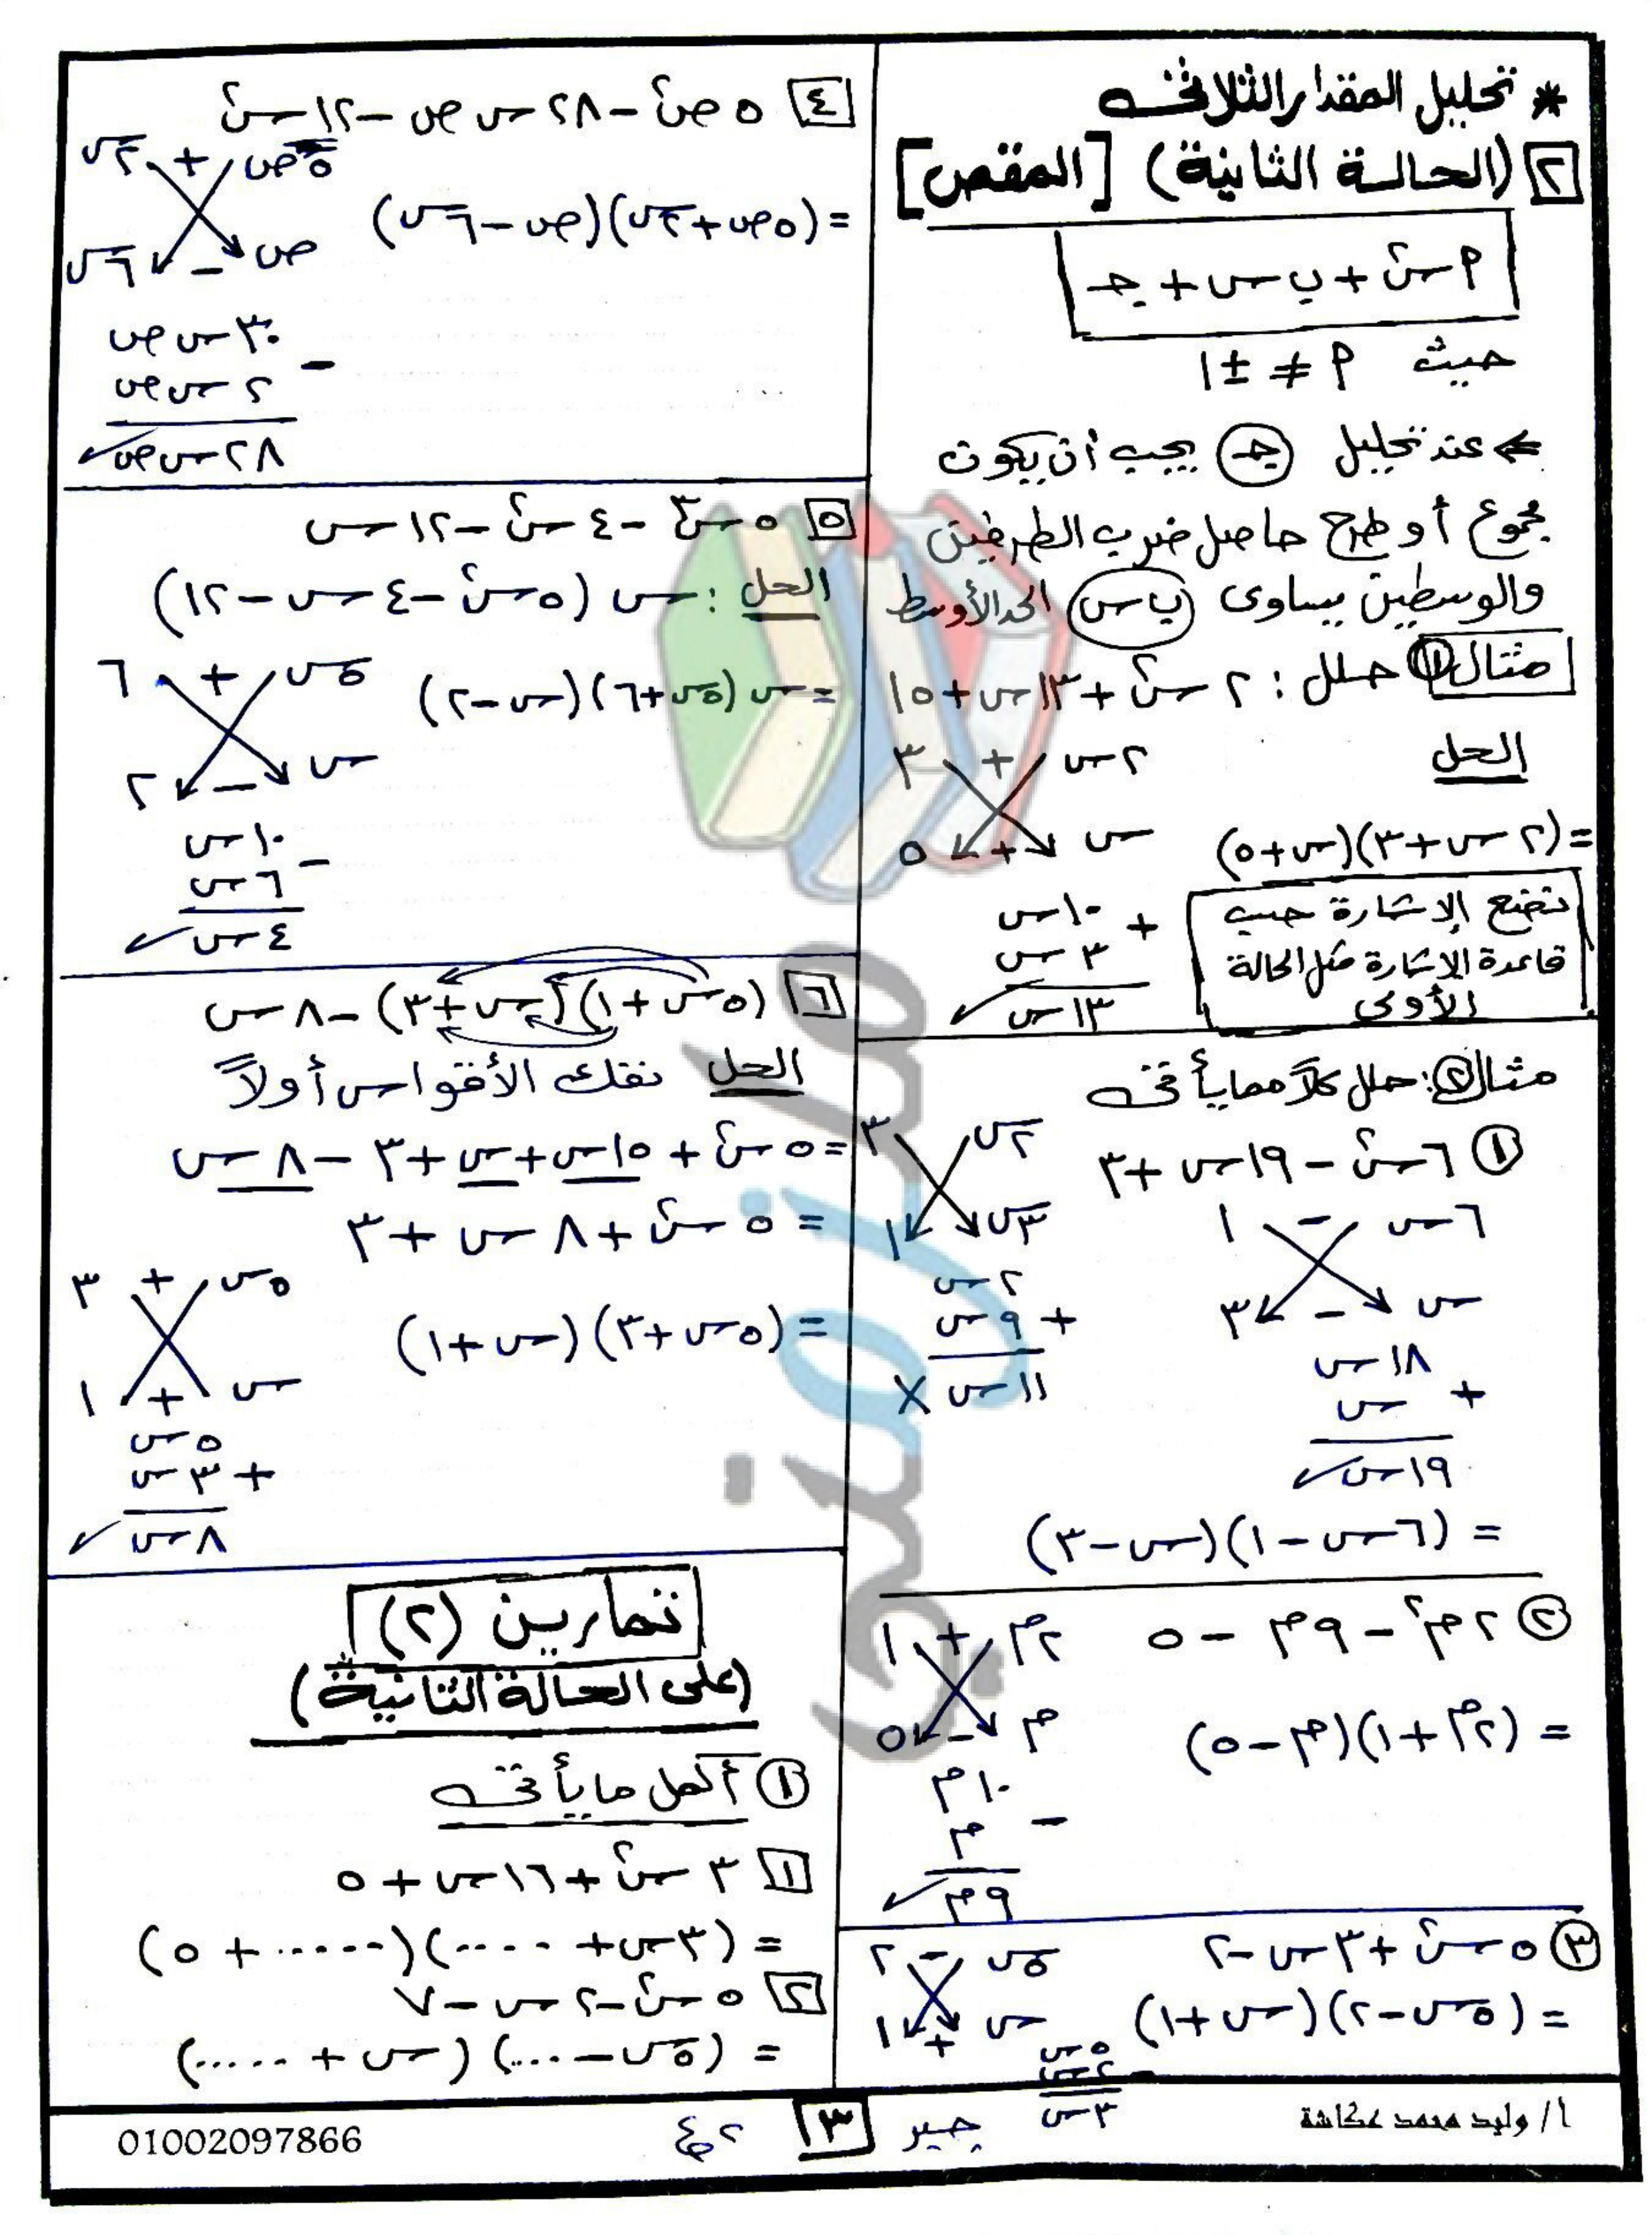 * تحليل المقدار الثلاثى
٢ (الحالة الثانية) [المقص]
٩ س٢ + ب س + جـ
حيث ٩ ≠ ± ١
← عند تحليل جـ يجب أن يكون
مجموع أو طرح حاصل ضرب الطرفين
والوسطين يساوى ب س الحد الأوسط
مثال ١ حلل : ٢ س٢ + ١٣ س + ١٥
الحل
٢ س + ٣
س + ٥
= (٢ س + ٣)(س + ٥)
١٠ س
+ ٣ س
١٣ س ✓
نضع الإشارة حسب
قاعدة الإشارة مثل الحالة
الأولى
مثال ٢: حلل كلاً مما يأتى
١ ٦ س٢ - ١٩ س + ٣
٦ س - ١
س - ٣
١٨ س
+ س
١٩ س ✓
٢ س ٣
٣ س ١
٢ س
+ ٩ س
١١ س ✗
= (٦ س - ١)(س - ٣)
٢ ٢ م٢ - ٩ م - ٥
٢ م + ١
م - ٥
= (٢ م + ١)(م - ٥)
١٠ م
- م
٩ م ✓
٣ ٥ س٢ + ٣ س - ٢
٥ س - ٢
س + ١
= (٥ س - ٢)(س + ١)
٥ س
- ٢ س
٣ س
٤ ٥ ص٢ - ٢٨ س ص - ١٢ س٢
٥ ص + ٢ س
ص - ٦ س
= (٥ ص + ٢ س)(ص - ٦ س)
٣٠ س ص
- ٢ س ص
٢٨ س ص ✓
٥ ٥ س٣ - ٤ س٢ - ١٢ س
الحل : س (٥ س٢ - ٤ س - ١٢)
٥ س + ٦
س - ٢
= س (٥ س + ٦)(س - ٢)
١٠ س
- ٦ س
٤ س ✓
٦ (٥ س + ١)(س + ٣) - ٨ س
الحل نفك الأقواس أولاً
= ٥ س٢ + ١٥ س + س + ٣ - ٨ س
= ٥ س٢ + ٨ س + ٣
٥ س + ٣
س + ١
= (٥ س + ٣)(س + ١)
٥ س
+ ٣ س
٨ س ✓
تمارين (٢)
(على الحالة الثانية)
١ أكمل ما يأتى
١ ٣ س٢ + ١٦ س + ٥
= (٣ س + ....)(..... + ٥)
٢ ٥ س٢ - ٢ س - ٧
= (٥ س - ....)(س + .....)
أ / وليد محمد عكاشة
جبر
٣
٢ ع
01002097866